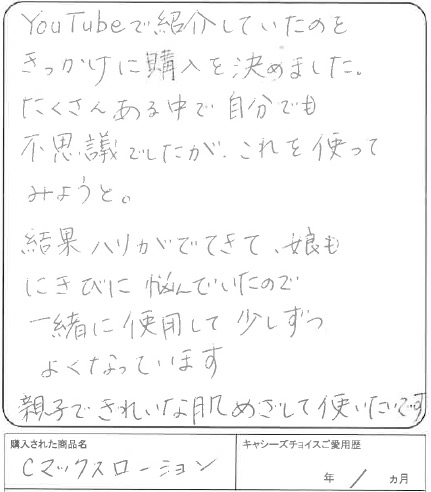 YouTubeで紹介していたのを
きっかけに購入を決めました。
たくさんある中で自分でも
不思議でしたが、これを使って
みようと。
結果ハリがでてきて、娘も
にきびに悩んでいたので
一緒に使用して少しずつ
よくなっています
親子できれいな肌めざして使いたいです
購入された商品名
キャシーズチョイスご愛用歴
Cマックスローション
年 / ヵ月